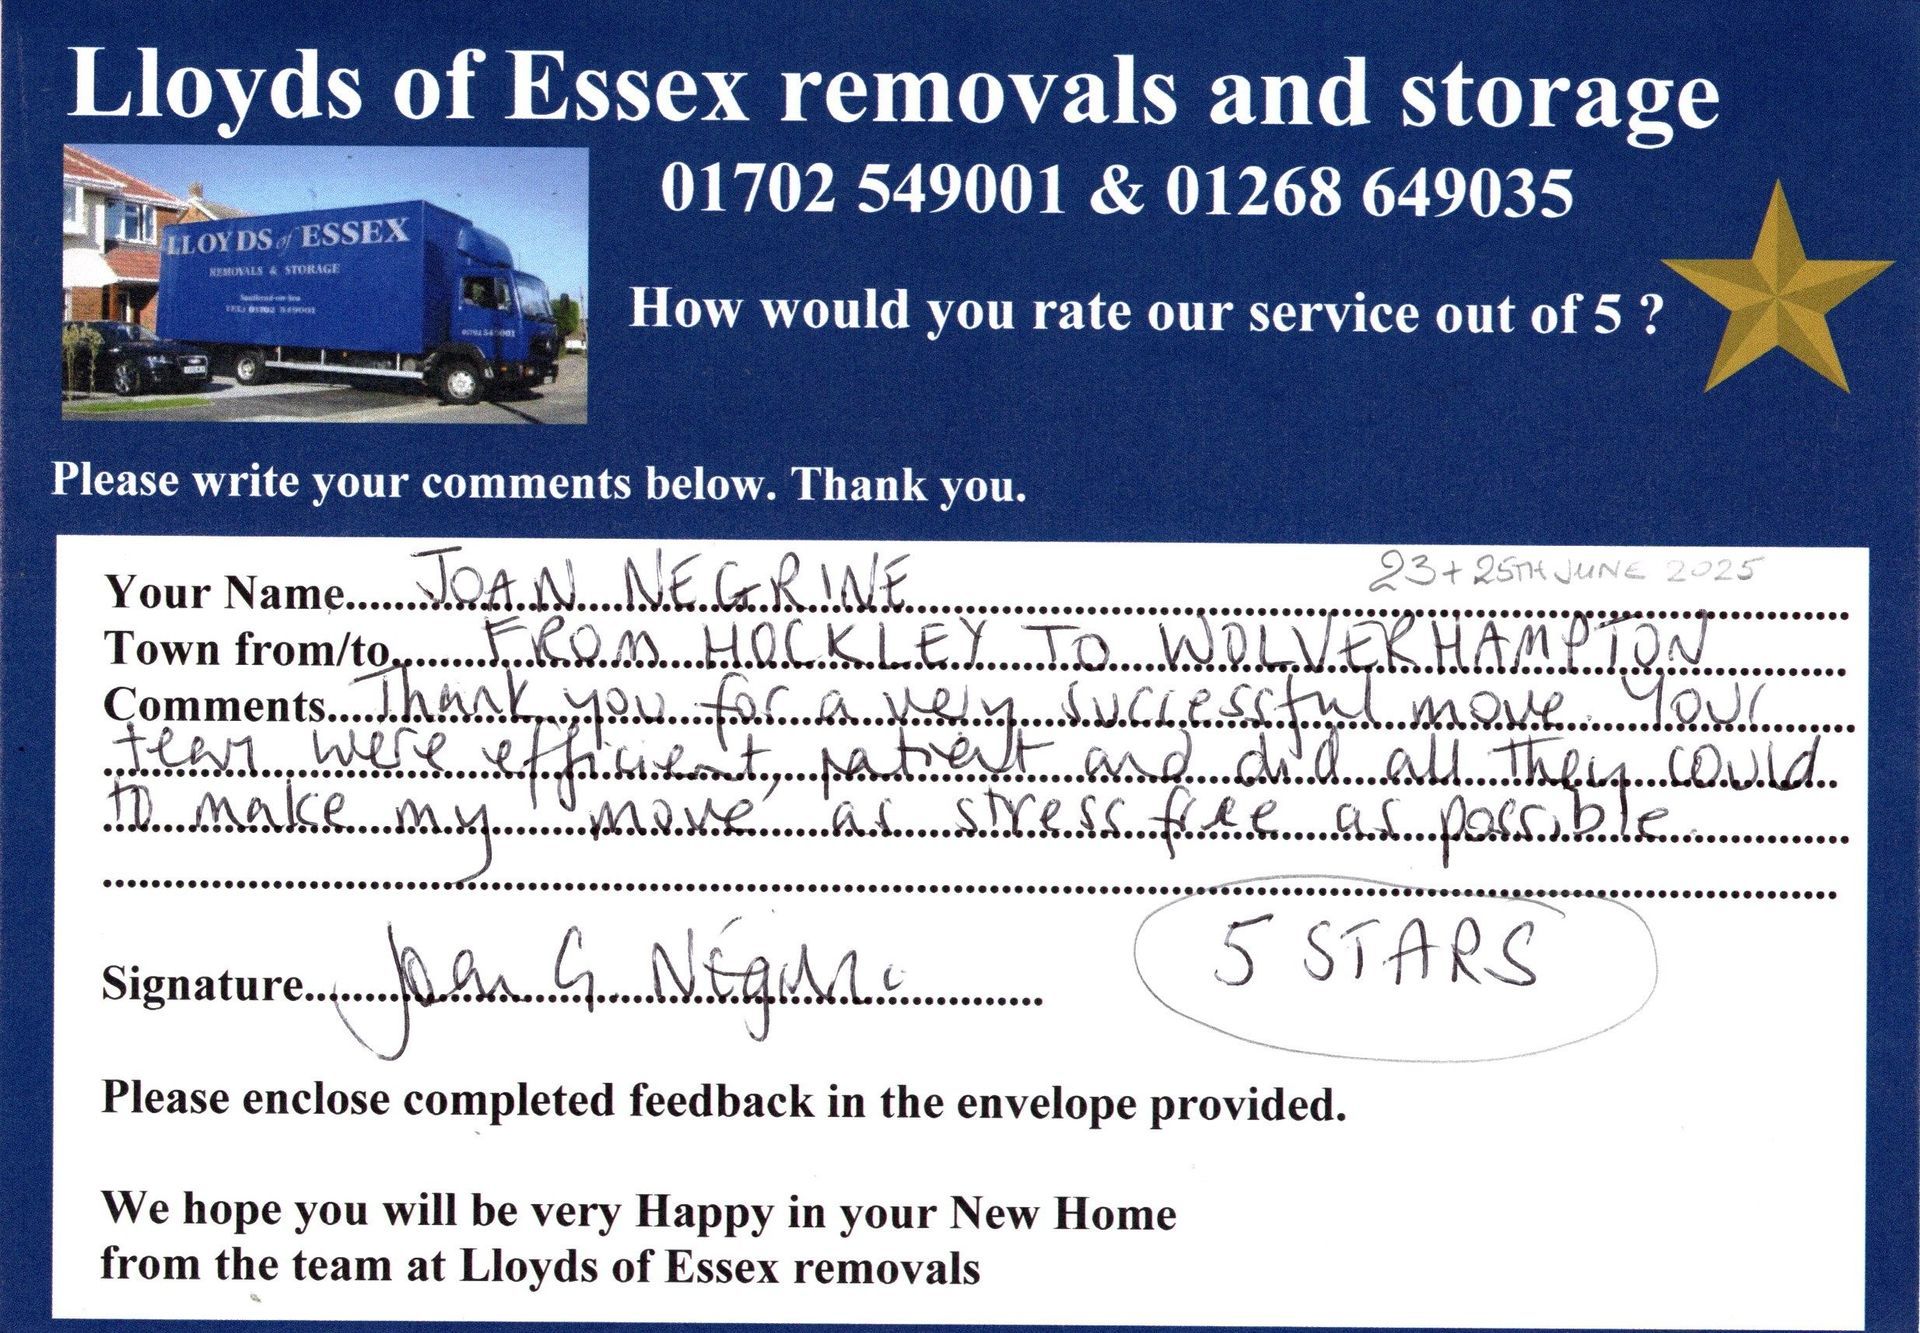 Lloyds of Essex removals and storage
01702 549001 & 01268 649035
LLOYDS of ESSEX
REMOVALS & STORAGE
Southend-on-Sea
TEL: 01702 549001
01702 549001
How would you rate our service out of 5 ?
Please write your comments below. Thank you.
23 + 25TH JUNE 2025
Your Name....JOAN NEGRINE
Town from/to....FROM HOCKLEY TO WOLVERHAMPTON
Comments....Thank you for a very successful move. Your
team were efficient, patient and did all they could
to make my move as stress free as possible.
Signature....Joan G. Negrine
5 STARS
Please enclose completed feedback in the envelope provided.
We hope you will be very Happy in your New Home
from the team at Lloyds of Essex removals